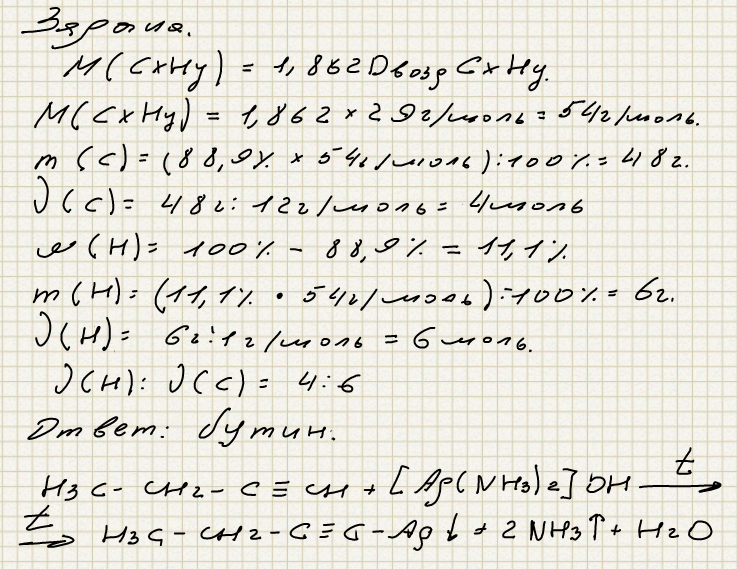 Задача.
M(CxHy) = 1,862Dвозд CxHy.
M(CxHy) = 1,862 × 29г/моль = 54г/моль.
m(C) = (88,9% × 54г/моль):100% = 48г.
ν(C) = 48г : 12г/моль = 4моль
ω(H) = 100% - 88,9% = 11,1%
m(H) = (11,1% • 54г/моль):100% = 6г.
ν(H) = 6г:1г/моль = 6моль.
ν(H): ν(C) = 4:6
Ответ: бутин.
H3C-CH2-C≡CH + [Ag(NH3)2]OH t→
t→ H3C-CH2-C≡C-Ag↓ + 2NH3↑ + H2O